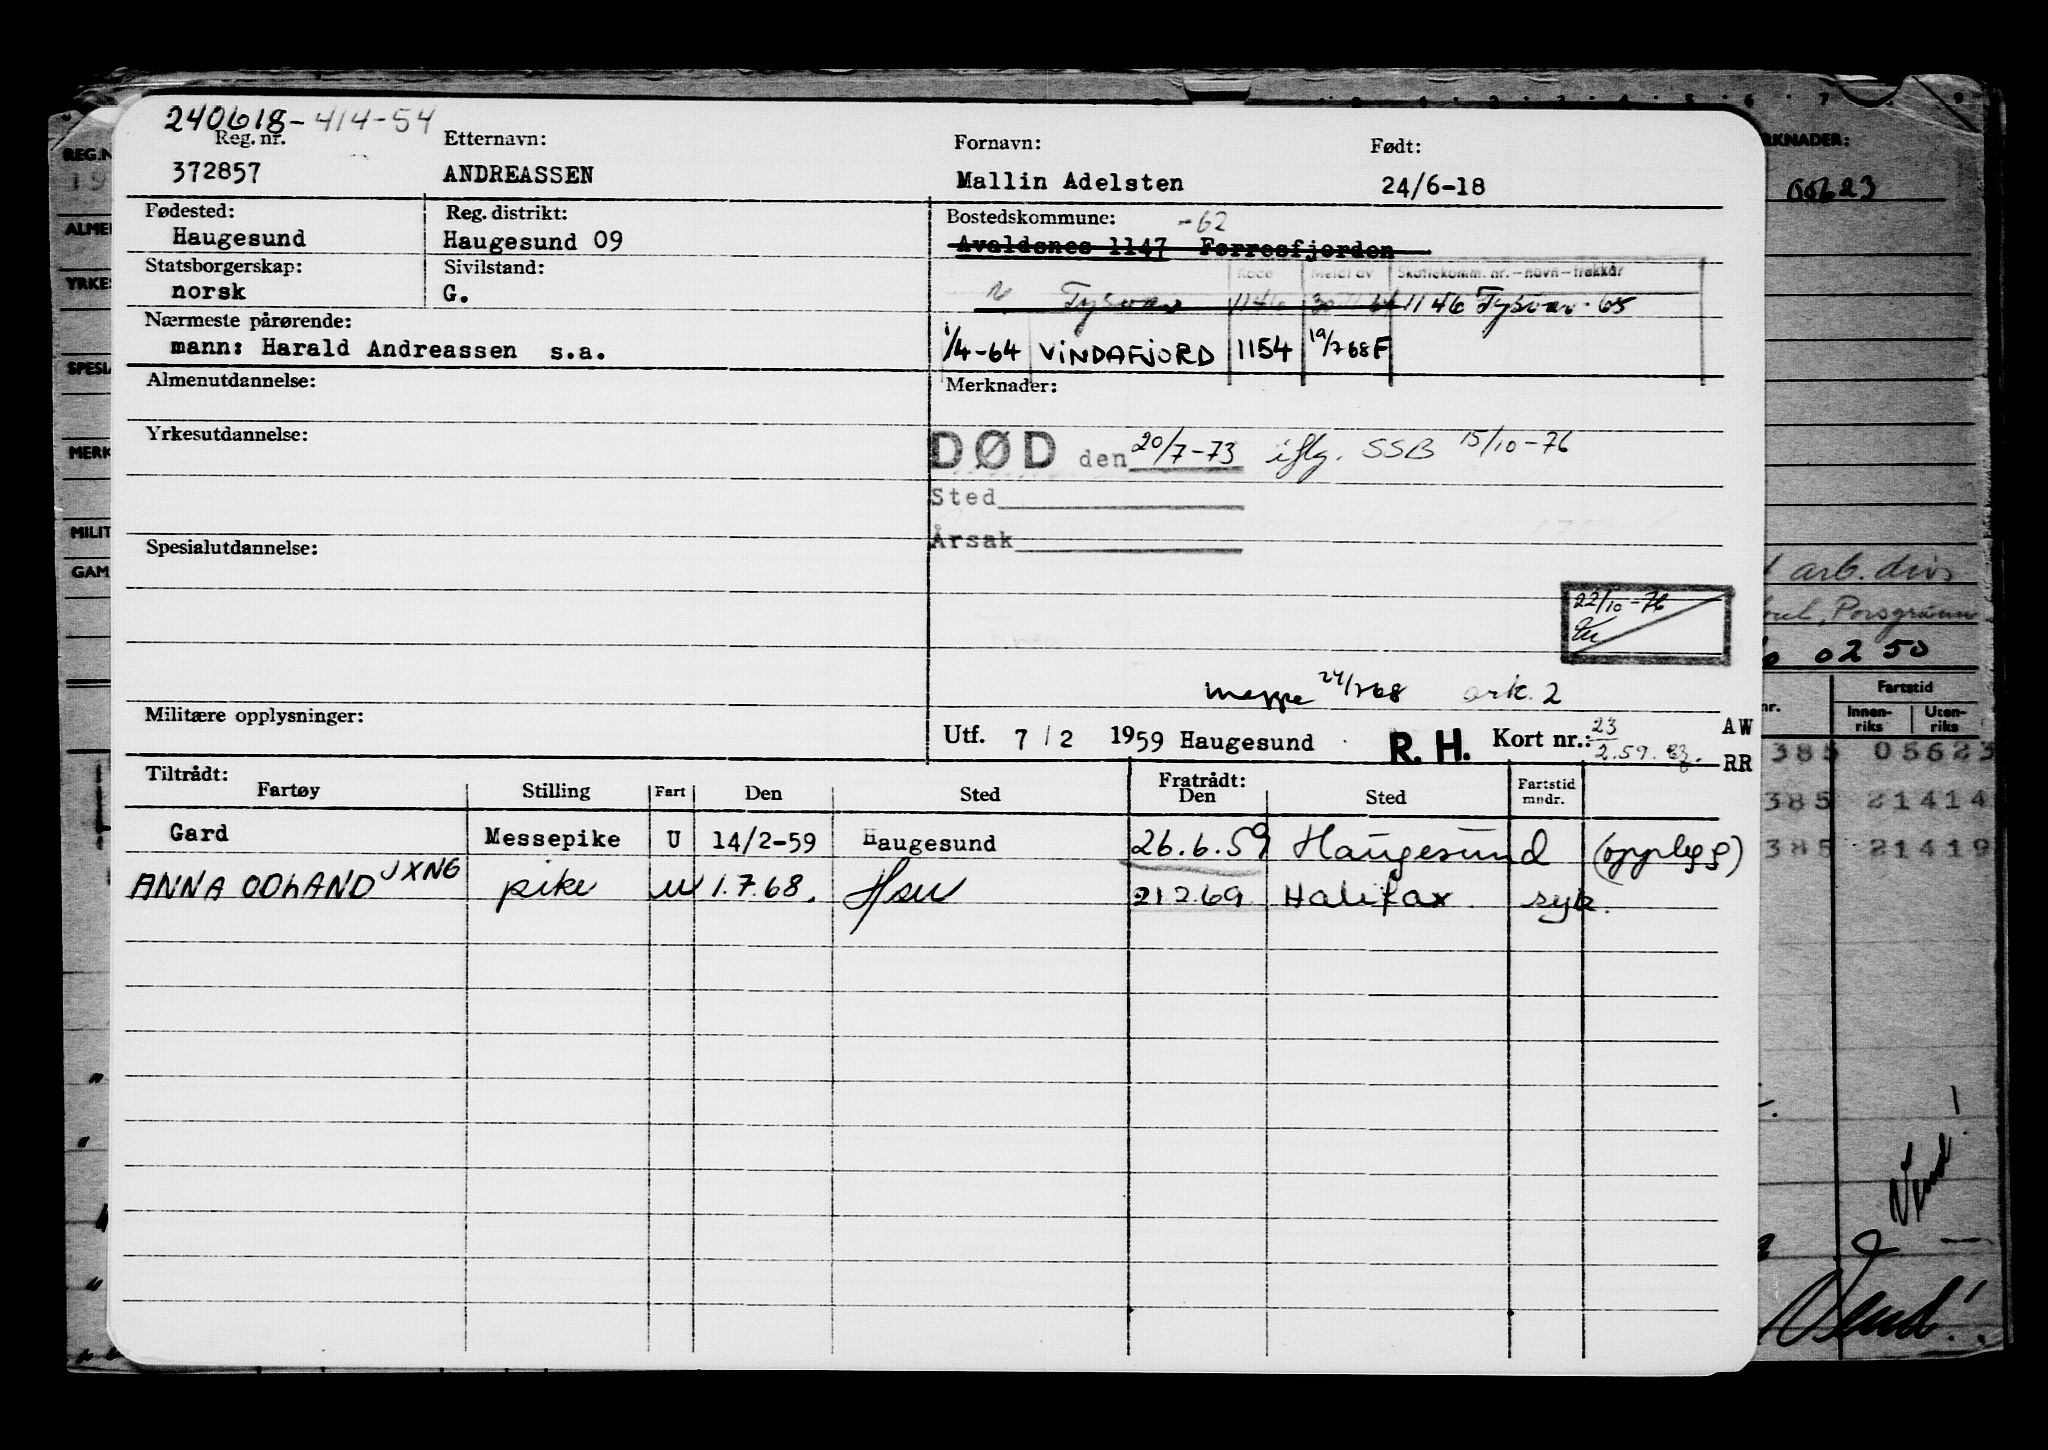 240618-414-54
Reg. nr. Etternavn: Fornavn: Født:
372857 ANDREASSEN Mallin Adelsten 24/6-18
Fødested: Reg. distrikt: Bostedskommune: -62
Haugesund Haugesund 09 Avaldsnes 1147 Førresfjorden
Statsborgerskap: Sivilstand: Kode Meldt av Skattekomm. nr.-navn-trekkår
norsk G. Tysvær 1146 1146 Tysvær-65
Nærmeste pårørende:
mann: Harald Andreassen s.a. 1/4-64 VINDAFJORD 1154 19/768F
Almenutdannelse: Merknader:
Yrkesutdannelse: DØD den 20/7-73 iflg. SSB 15/10-76
Sted
Årsak
Spesialutdannelse:
22/10-76
mappe 24/768 ark. 2
Militære opplysninger: Utf. 7/2 1959 Haugesund R. H. Kort nr.: 23 AW
2.59. RR
Tiltrådt: Fratrådt:
Fartøy Stilling Fart Den Sted Den Sted Fartstid mndr.
Gard Messepike U 14/2-59 Haugesund 26.6.59 Haugesund (opplegg)
ANNA ODLAND JXNG pike U 1.7.68. Hsu 21.2.69 Halifax. syk.
REG.N
19
ALME
YRKES
SPESIA
MERK
MILIT
GAM
RKNADER:
00623
arb. div
Porsgrunn
0250
nr. Fartstid
Innenriks Utenriks
385 05623
385 21414
385 21419
Vend
Vend!